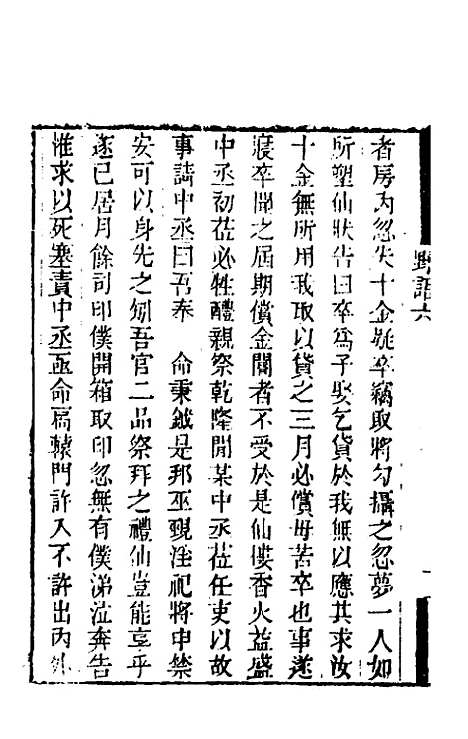 野語六
者房內忽失十金疑卒竊取將勾攝之忽夢一人如
所塑仙狀告曰卒爲子娶乞貸於我無以應其求汝
十金無所用我取以貸之三月必償毋苦卒也事遂
寢卒聞之屆期償金閽者不受於是仙樓香火益盛
中丞初莅必牲醴親祭乾隆閒某中丞莅任吏以故
事請中丞曰吾奉　命秉鉞是邦巫覡淫祀將申禁
安可以身先之矧吾官二品祭拜之禮仙豈能享乎
遂已居月餘司印僕開箱取印忽無有僕涕泣奔告
惟求以死塞責中丞亟命扃轅門許入不許出內外